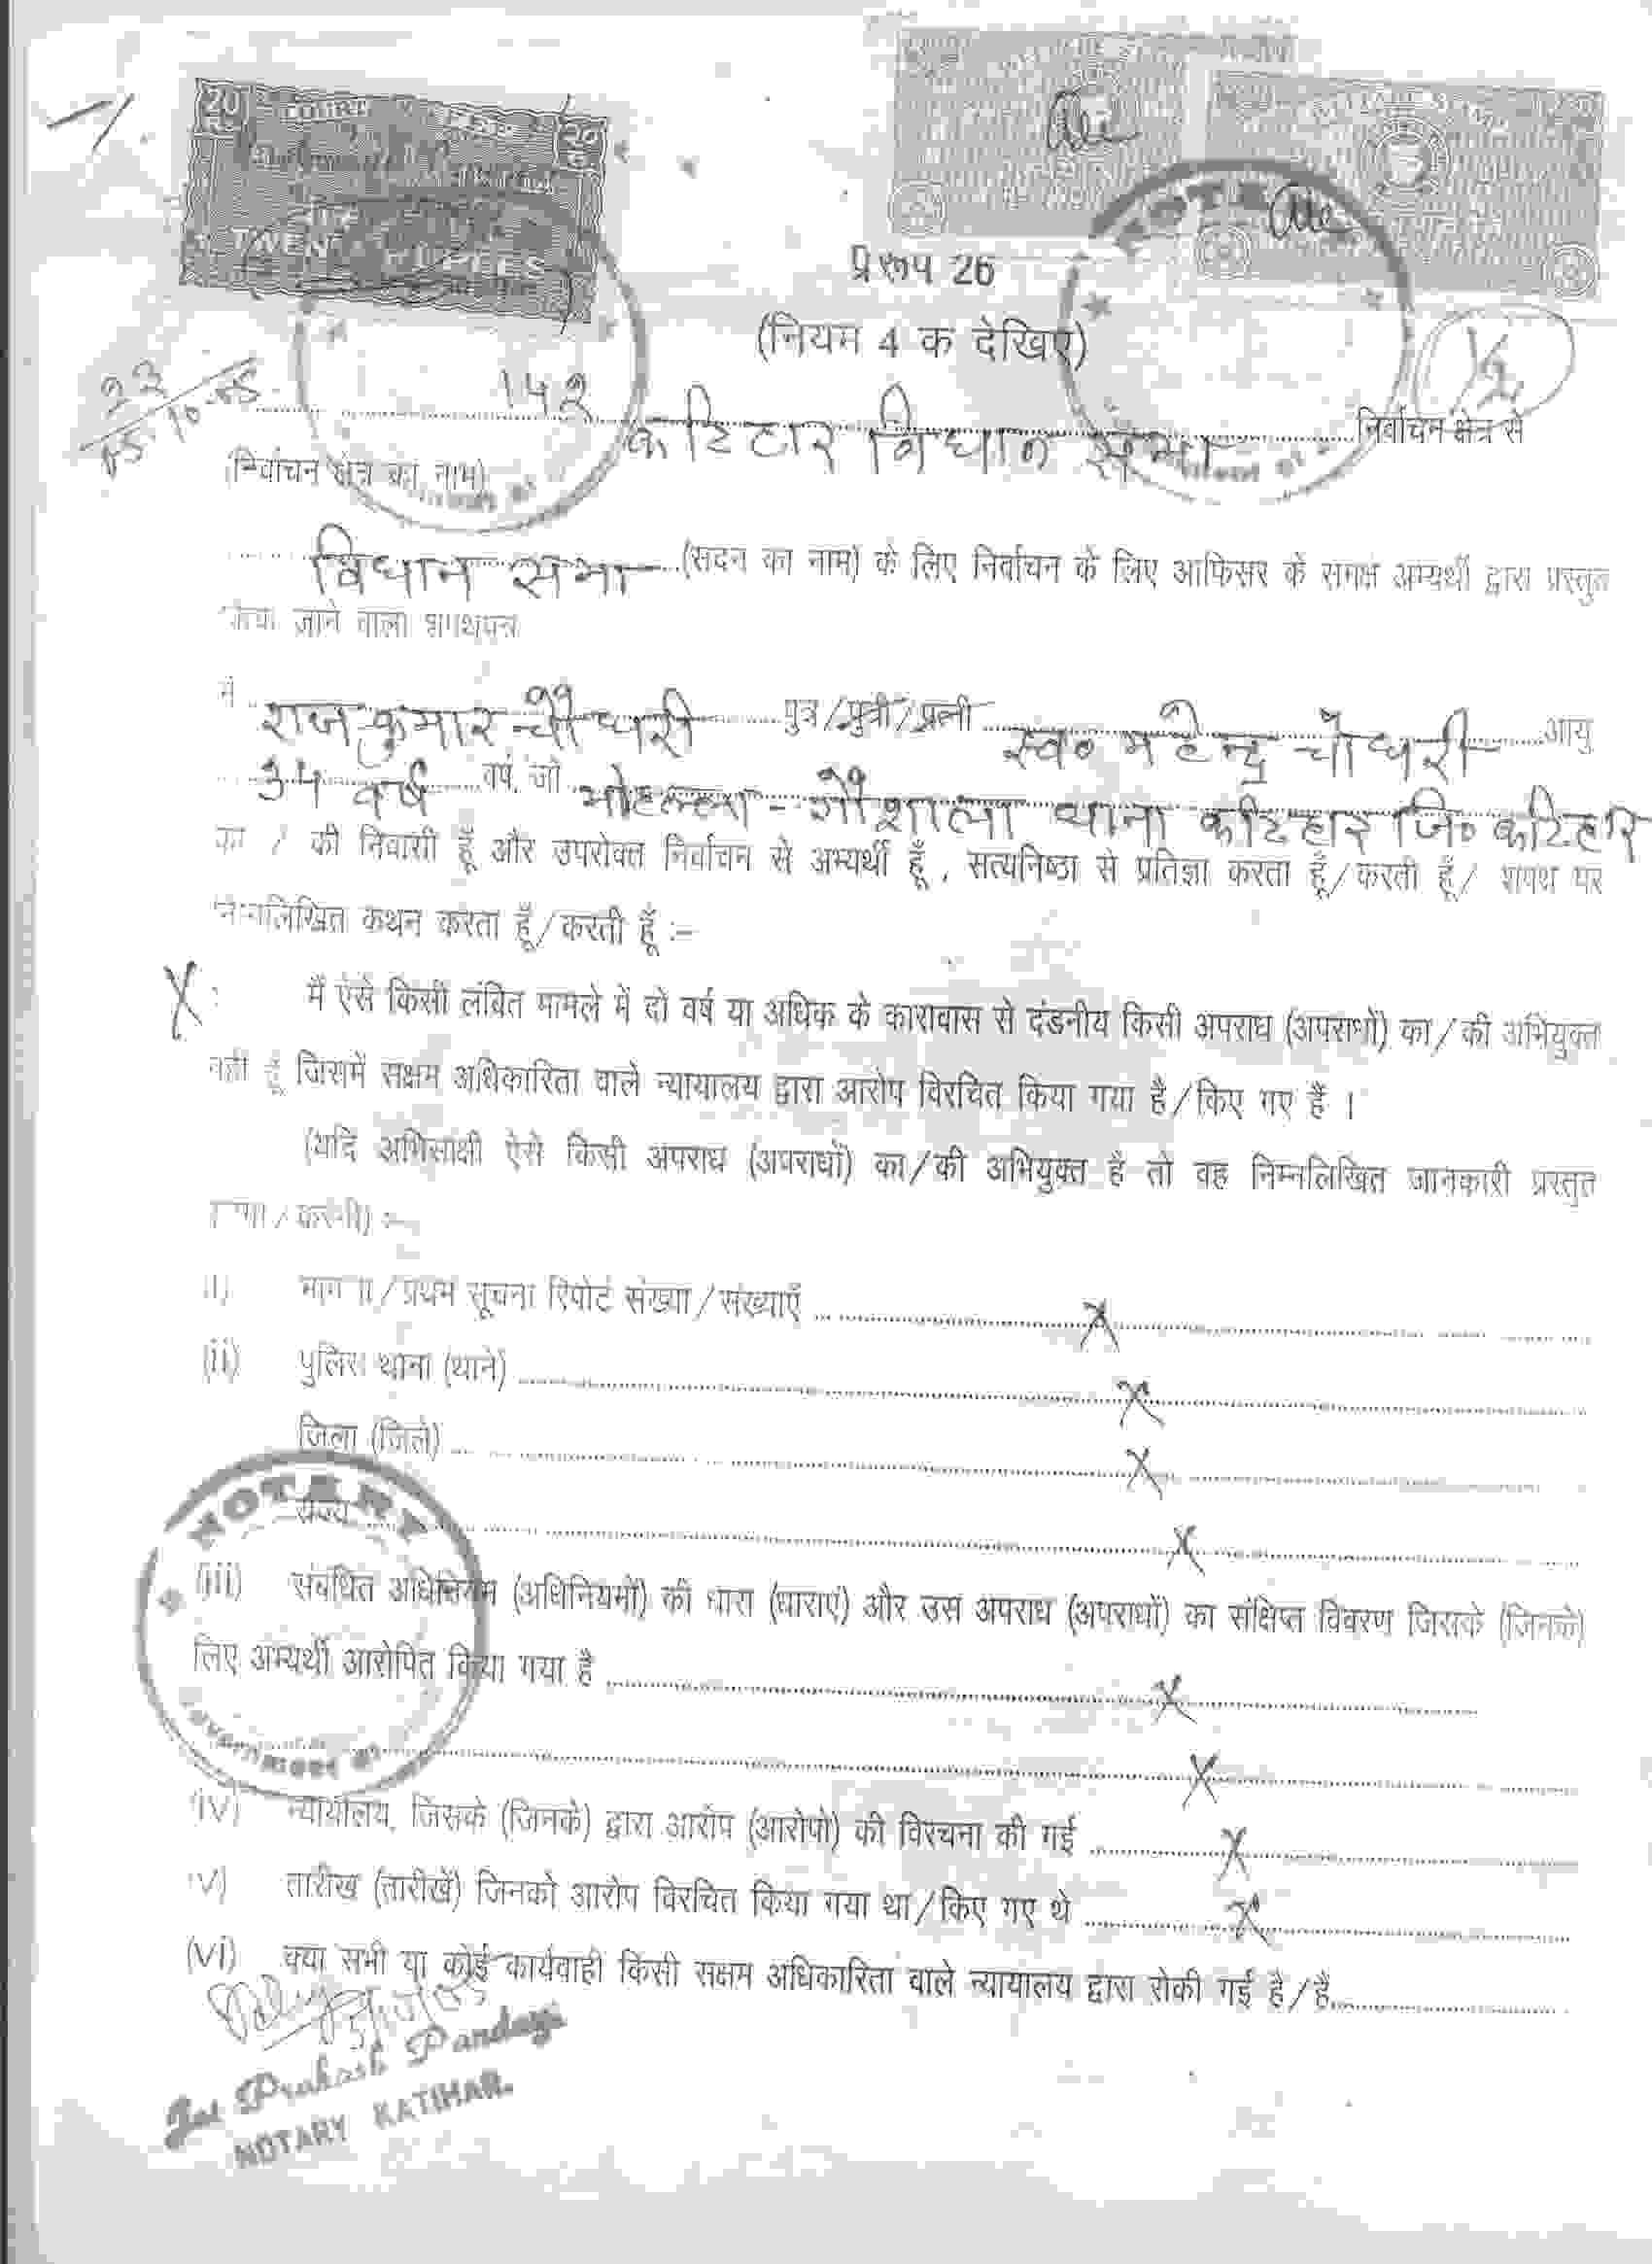 20 COURT 20
TWENTY RUPEES
NOTARY
प्ररूप 26
(नियम 4 क देखिए)
142 कटिहार विधान सभा निर्वाचन क्षेत्र से
(निर्वाचन क्षेत्र का नाम)
विधान सभा (सदन का नाम) के लिए निर्वाचन के लिए आफिसर के समक्ष अभ्यर्थी द्वारा प्रस्तुत
किया जाने वाला शपथपत्र
मैं राज कुमार चौधरी पुत्र/पुत्री/पत्नी स्व० महेन्द्र चौधरी आयु
34 वर्ष वर्ष, जो मोहल्ला - गौशाला थाना कटिहार जि० कटिहार
का / की निवासी हूँ और उपरोक्त निर्वाचन से अभ्यर्थी हूँ, सत्यनिष्ठा से प्रतिज्ञा करता हूँ/करती हूँ/ शपथ पर
निम्नलिखित कथन करता हूँ/करती हूँ :–
X मैं ऐसे किसी लंबित मामले में दो वर्ष या अधिक के कारावास से दंडनीय किसी अपराध (अपराधों) का/की अभियुक्त
नहीं हूँ जिसमें सक्षम अधिकारिता वाले न्यायालय द्वारा आरोप विरचित किया गया है/किए गए हैं ।
(यदि अभिसाक्षी ऐसे किसी अपराध (अपराधों) का/की अभियुक्त है तो वह निम्नलिखित जानकारी प्रस्तुत
करेगा/करेगी) :–
(i) भाग II/प्रथम सूचना रिपोर्ट संख्या/संख्याएँ X
(ii) पुलिस थाना (थाने) X
जिला (जिले) X
राज्य X
(iii) संबंधित अधिनियम (अधिनियमों) की धारा (धाराएं) और उस अपराध (अपराधों) का संक्षिप्त विवरण जिसके (जिनके)
लिए अभ्यर्थी आरोपित किया गया है X
X
(iv) न्यायालय, जिसके (जिनके) द्वारा आरोप (आरोपों) की विरचना की गई X
(v) तारीख (तारीखें) जिनको आरोप विरचित किया गया था/किए गए थे X
(vi) क्या सभी या कोई कार्यवाही किसी सक्षम अधिकारिता वाले न्यायालय द्वारा रोकी गई है/हैं
NOTARY
Government of
Jai Prakash Pandage
NOTARY KATIHAR.